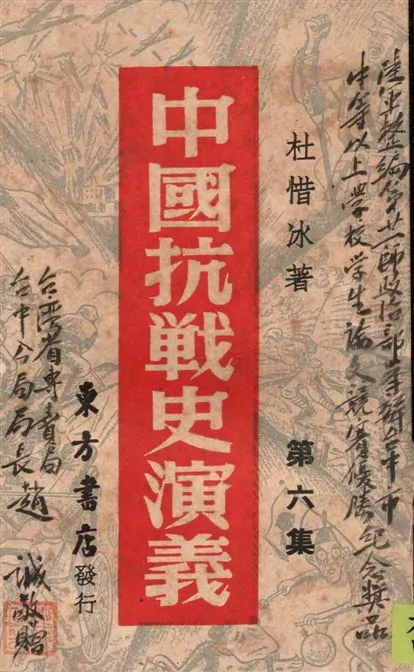 陸軍整編第廿一師政治部主辦台中市
中等以上學校學生論文競賽優勝紀念獎品
杜惜冰著
第六集
中國抗戰史演義
東方書店發行
台灣省專賣局
台中分局局長趙誠敬贈